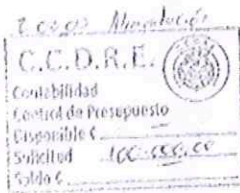 2.03.03 Alimentación
C.C.D.R.E.
Contabilidad
Control de Presupuesto
Disponible ¢
Solicitud 100.000.00
Saldo ¢